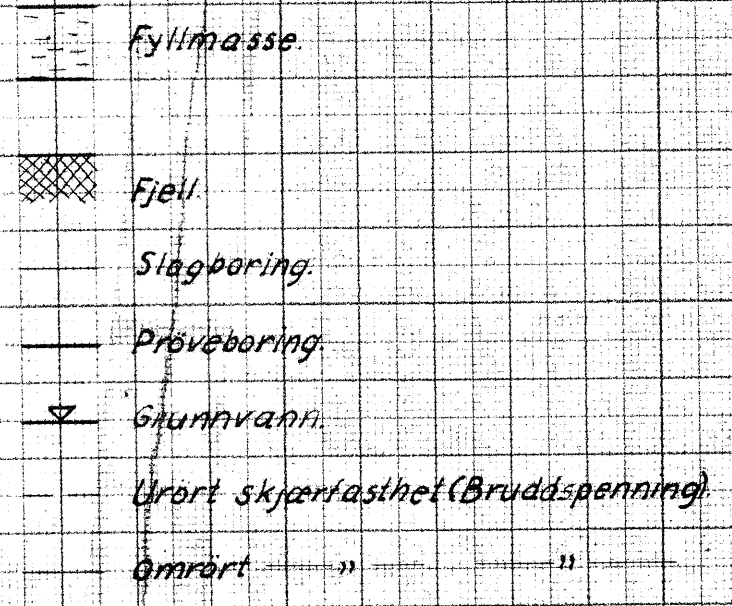 Fyllmasse.
Fjell.
Slagboring.
Pröveboring.
Grunnvann.
Urört skjærfasthet (Bruddspenning).
Omrört " "